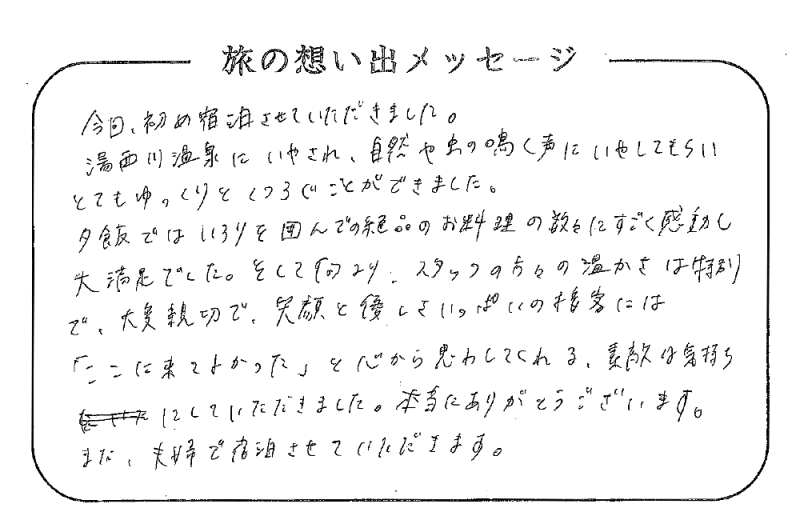 旅の想い出メッセージ
今回、初め宿泊させていただきました。
湯西川温泉にいやされ、自然や虫の鳴く声にいやしてもらい
とてもゆっくりとくつろぐことができました。
夕飯ではいろりを囲んでの絶品のお料理の数々にすごく感動し
大満足でした。そして何より、スタッフの方々の温かさは特別
で、大変親切で、笑顔と優しさいっぱいの接客には
「ここに来てよかった」と心から思わしてくれる、素敵な気持ち
にしていただきました。本当にありがとうございます。
また、夫婦で宿泊させていただきます。